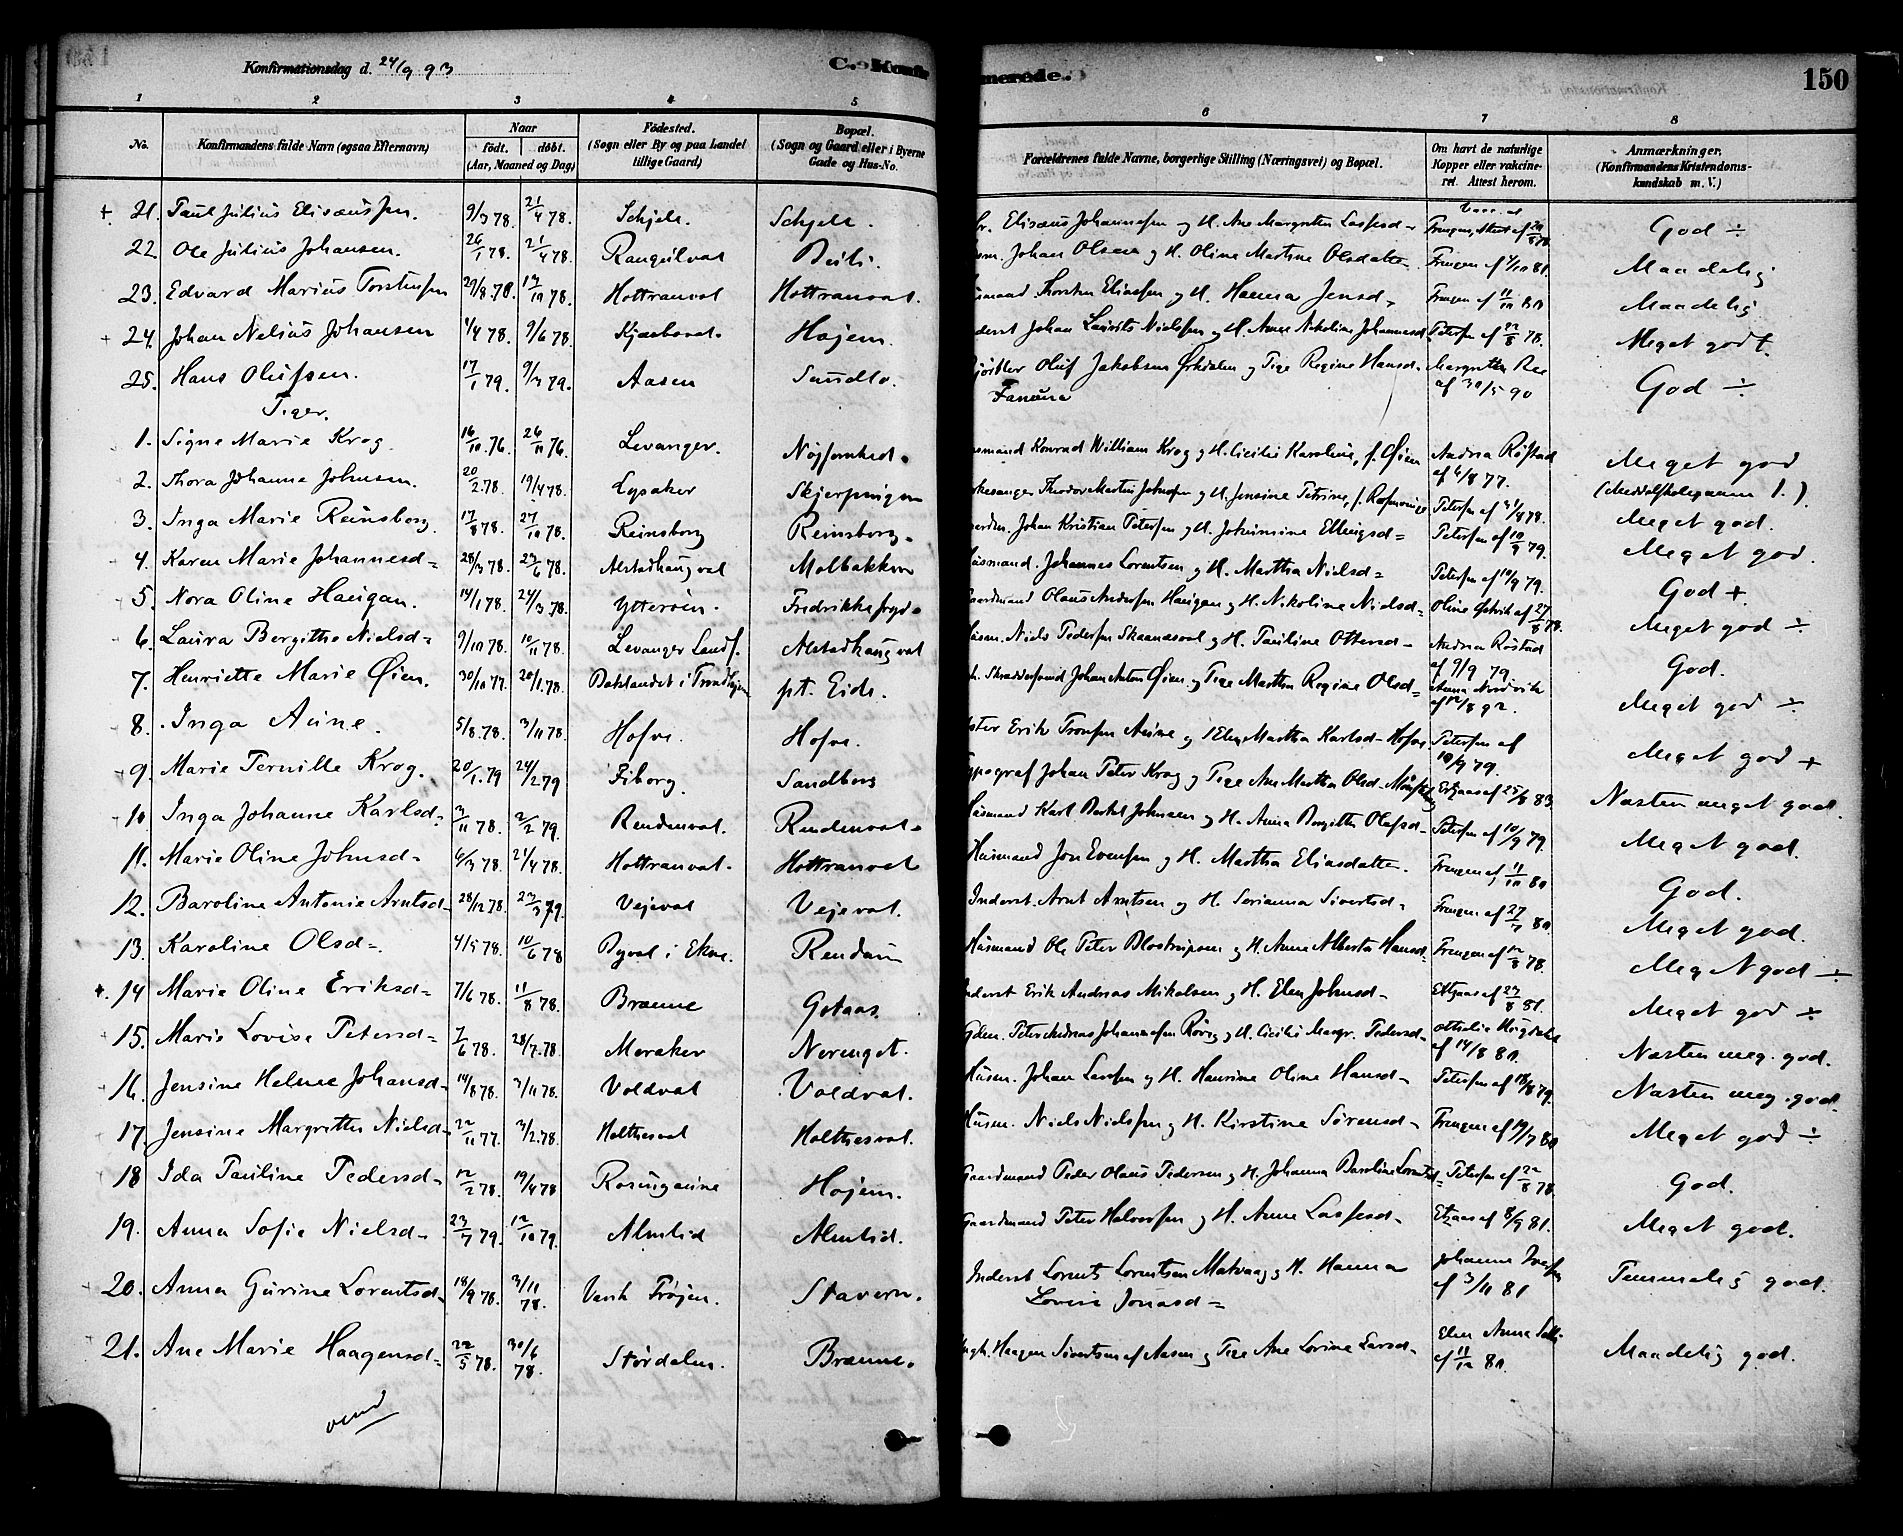 Konfirmationsdag d. 24/9 93 C. Konfirmerede. 150
1 2 3 4 5 6 7 8
No. Konfirmandens fulde Navn (ogsaa Efternavn) Naar født. døbt. (Aar, Maaned og Dag) Fødested. (Sogn eller By og paa Landet tillige Gaard) Bopæl. (Sogn og Gaard eller i Byerne Gade og Hus-No. Forældrenes fulde Navne, borgerlige Stilling (Næringsvei) og Bopæl. Om havt de naturlige Kopper eller vakcineret. Attest herom. Anmærkninger, (Konfirmandens Kristendomskundskab m. V.)
+ 21. Paul Julius Elisæussen. 9/3 78. 21/4 78. Schjelt. Schjelt. Elisæus Johannesen og H. Ane Margrethe Lassesd= God ÷
22 Ole Julius Johansen. 26/1 78. 21/4 78. Rangulvat Johan Olsen og H. Oline Martine Olsdatter Frengen af 4/10 81. Maadelig
23. Edvard Marius Torstensen 29/8.78. 13/10 78. Hottranvat Hottranvat. Thorsten Eliassen og H. Hanna Jensd= Frengen af 11/10 80 Maadelig
+ 24. Johan Nelius Johansen 1/4 78. 9/6 78. Hojem. Inderst Johan Laurits Nielssen og H. Anne Nikoline Johannesd. Petersen af 22/8 78. Meget godt.
25. Hans Olufsen. 17/1 79. 9/3 79. Aasen Sundlo. Oluf Jakobsen Ørkdalen og Pige Regine Hansd= Margrethe Ree
Fanæura af 30/5 90 God ÷
Piger.
1. Signe Marie Krog. 16/10 76. 26/11 76. Levanger. Nøjsomhed. Konrad William Krog og H. Cicilie Karoline, f. Øien Andrea Røstad af 6/8 77. Meget god
2. Thora Johanne Johnsen. 20/2.78. 19/4 78. Lysaker Skjerpingen Kirkesanger Theodor Martin Johnsen og H. Jensine Petrine, f. Petersen af 4/4 78. (Middelskoleexamen 1.) Meget god.
3. Inga Marie Reinsborg. 17/8 78. 27/10 78. Reinsborg Reinsborg. Johan Kristian Petersen og H. Johansine Ellingsd= Petersen af 10/9 79. Meget god.
4. Karen Marie Johannesd= 28/3 78. 23/6 78. Alstadhaugval Molbakken Husmand. Johannes Lorentsen og H. Martha Nielsd= Petersen af 10/9 79. God +.
5. Nora Oline Haugan. 14/1.78. 24/3 78. Ytterøen. Fredrikkefryd. Gaardmand Olaus Andersen Haugan og H. Nikoline Nielsd= Oline af 27/8 78. Meget god ÷
6. Laura Bergithe Nielsd= 9/10 78. 10/11 78. Levanger Lands. Alstadhaugval Husm. Niels Pedersen og H. Pauline Ottersd= Andrea Røstad af 9/9 79 God.
7. Henriette Marie Øien. 30/10 77. 20/1.78. Baklandet i Trondhjem pt. Eide. Johan Anton Øien. og Pige Martha Regine Olsd= Anna Nordvik af 12/8 92. Meget god ÷
8. Inga Aune. 5/8.78. 3/11 78. Hofve. Hofve. Erik Tronsen Aune og Martha Karlsd= Hofve. Petersen af 10/9 79. Meget god +
9. Marie Pernille Krog. 20/1.79 24/2 79 Fiborg. Sandbors Typograf Johan Peter Krog og Pige Ane Martha Olsd= af 25/8 83. Næsten meget god.
10. Inga Johanne Karlsd= 3/11 78. 2/2 79. Rendenvat. Rendenvat. Husmand Karl Johnsen og H. Anna Bergitte Olafsd= Petersen af 10/9 79. Meget god.
11. Marie Oline Johnsd= 6/3 78. 21/4 78. Hottranvat. Hottranvat Husmand Jon Evensen og H. Martha Eliasdatter. Frengen af 11/10 80 God.
12. Baroline Antonie Arntsd= 28/12 78. 23/3 79. Vejevat Vejevat. Inderst. Arnt Arntsen og H. Serianna Sivertsd= Frengen af 27/7 80 Meget god.
13. Karoline Olsd=. 4/5 78. 10/6 78 Byvat i Ekne. Rendum Husmand Ole Peter og H. Anne Alberta Hansd. Frengen af 12/8 78. Meget god ÷
14 Marie Oline Eriksd= 7/6 78. 11/8 78. Brænne Gotaas. Inderst Erik Andreas Mikalsen og H. Elen Johnsd= af 23/8 81. Meget god ÷
15. Maris Lovise Petersd= 7/6 78. 28/7.78. Meraker Norenget. Gdm. Peter Andreas Johannesen og H. Cicilie Margr. Pedersd= af 14/8 80. Næsten meg. god.
16. Jensine Helnee Johansd= 14/8 78. 3/11 78. Voldvat Voldvat. Husm. Johan Larsen og H. Maurine Oline Hansd= Petersen af 18/8 79. Næsten meg. god.
17. Jensine Margrethe Nielsd= 22/11 77. 3/2.78. Holthesvat Holthesvat. Husm. Niels Nielssen og H. Kirstine Sørensd= Frengen af 19/7 80 Meget god ÷
18 Ida Pauline Pedersd= 12/2 78. 19/4 78 Rosingaune Hojem. Gaardmand Peder Olaus Pedersen og H. Johanna Baroline Lorentsd= Petersen af 22/8 78. God.
19. Anna Sofie Nielsd= 23/7 79. 12/10 79. Almlid Almlid. Gaardmand Peter Halvorsen og H. Anne Lassesd= af 8/9 81. Meget god.
20. Anna Gurine Lorentsd= 18/9 78. 3/11 78. Værk Frøjen. Stavern. Inderst Lorents Lorentsen Matvaag og H. Hanna Lovise Jonasd= Johanne af 3/11 81 Temmelig god.
21. Ane Marie Haagensd= 22/5 78. 30/6 78. Stördalen. Brænne. Haagen Sivertsen af Aasen og Pige Ane Lovine Larsd= Elen Anna af 11/12 80. Maadelig god.
vend